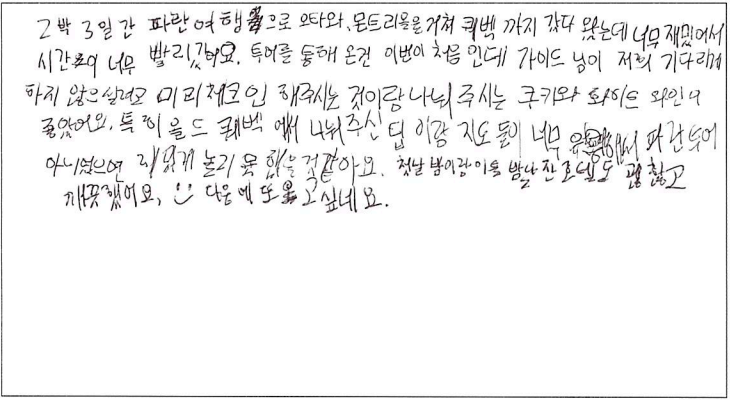 2박 3일간 파란여행으로 오타와, 몬트리올을 거쳐 퀘벡 까지 갔다 왔는데 너무 재밌어서
시간이 너무 빨리갔어요. 투어를 통해 온건 이번이 처음 인데 가이드 님이 저희 기다리게
하지 않으실려고 미리 체크인 해주시는 것이랑 나눠 주시는 쿠키와 화이트 와인이
좋았어요. 특히 올드 퀘벡 에서 나눠주신 팁 이랑 지도 들이 너무 유용해서 파란투어
아니였으면 재밌게 놀지 못 했을 것 같아요. 첫날 밤이랑 이튿 밤날 잔 호텔도 괜찮고
깨끗했어요, 다음에 또 오고 싶네요.